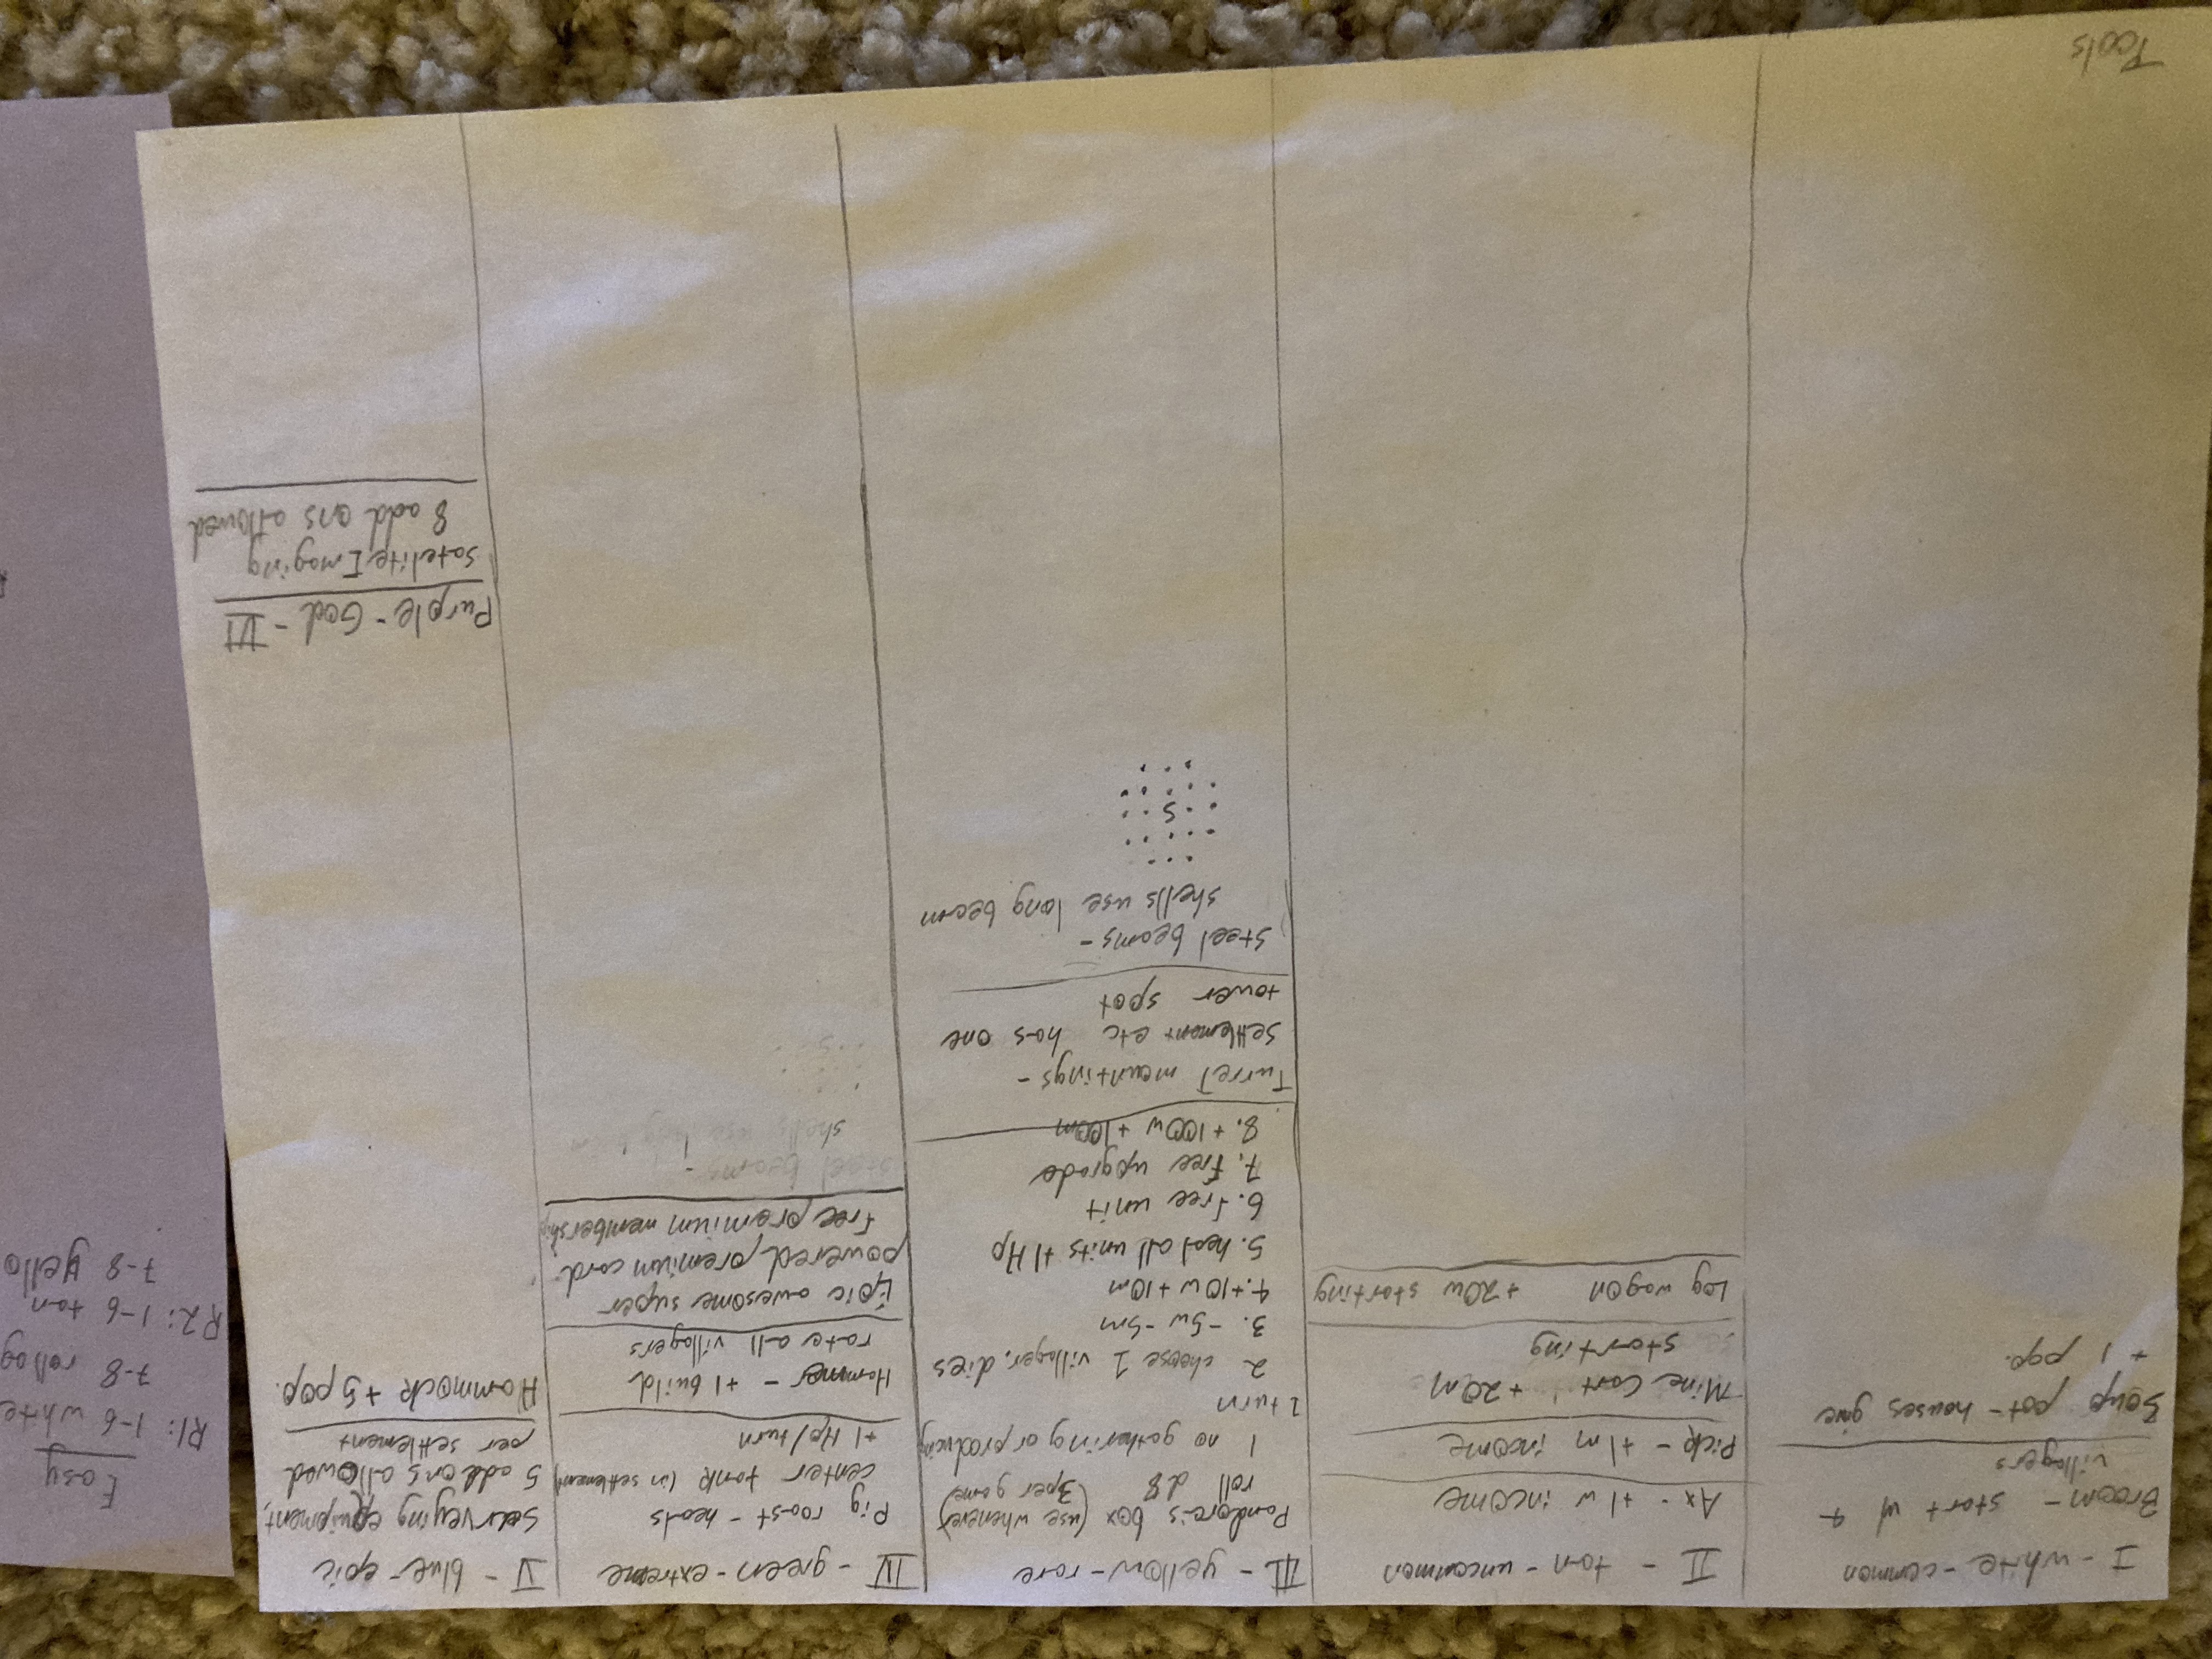 I - white - common
Broom - start w/ 4
villagers
Soup pot - houses give
+ 1 pop.
II - tan - uncommon
Ax - +1 w income
Pick - +1m income
Mine Cart +20M
starting
Log wagon +20w starting
III - yellow - rare
Pandora's box (use whenever)
roll d8 (3per game)
1 no gathering or producing
1 turn
2 choose 1 villager, dies
3. -5w -5m
4. +10w +10m
5. heal all units +1 Hp
6. free unit
7. Free upgrade
8. +100w +100m
Turret mountings -
settlement etc has one
tower spot
Steel beams -
shells use long beam
S
IV - green - extreme
Pig roast - heals
center tank (in settlement)
+1 Hp/turn
Hammer - +1 build
rate all villagers
Epic awesome super
powered premium card -
free premium membership
V - blue - epic
Surveying equipment,
5 add ons allowed
per settlement
Hammock +5 pop.
Purple - God - VI
Satelite Imaging
8 add ons allowed
Tools
Easy
R1: 1-6 white
7-8 roll ag
R2: 1-6 tan
7-8 yello